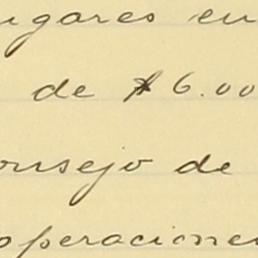 ugares en
de $6.00
onsejo de
operacione